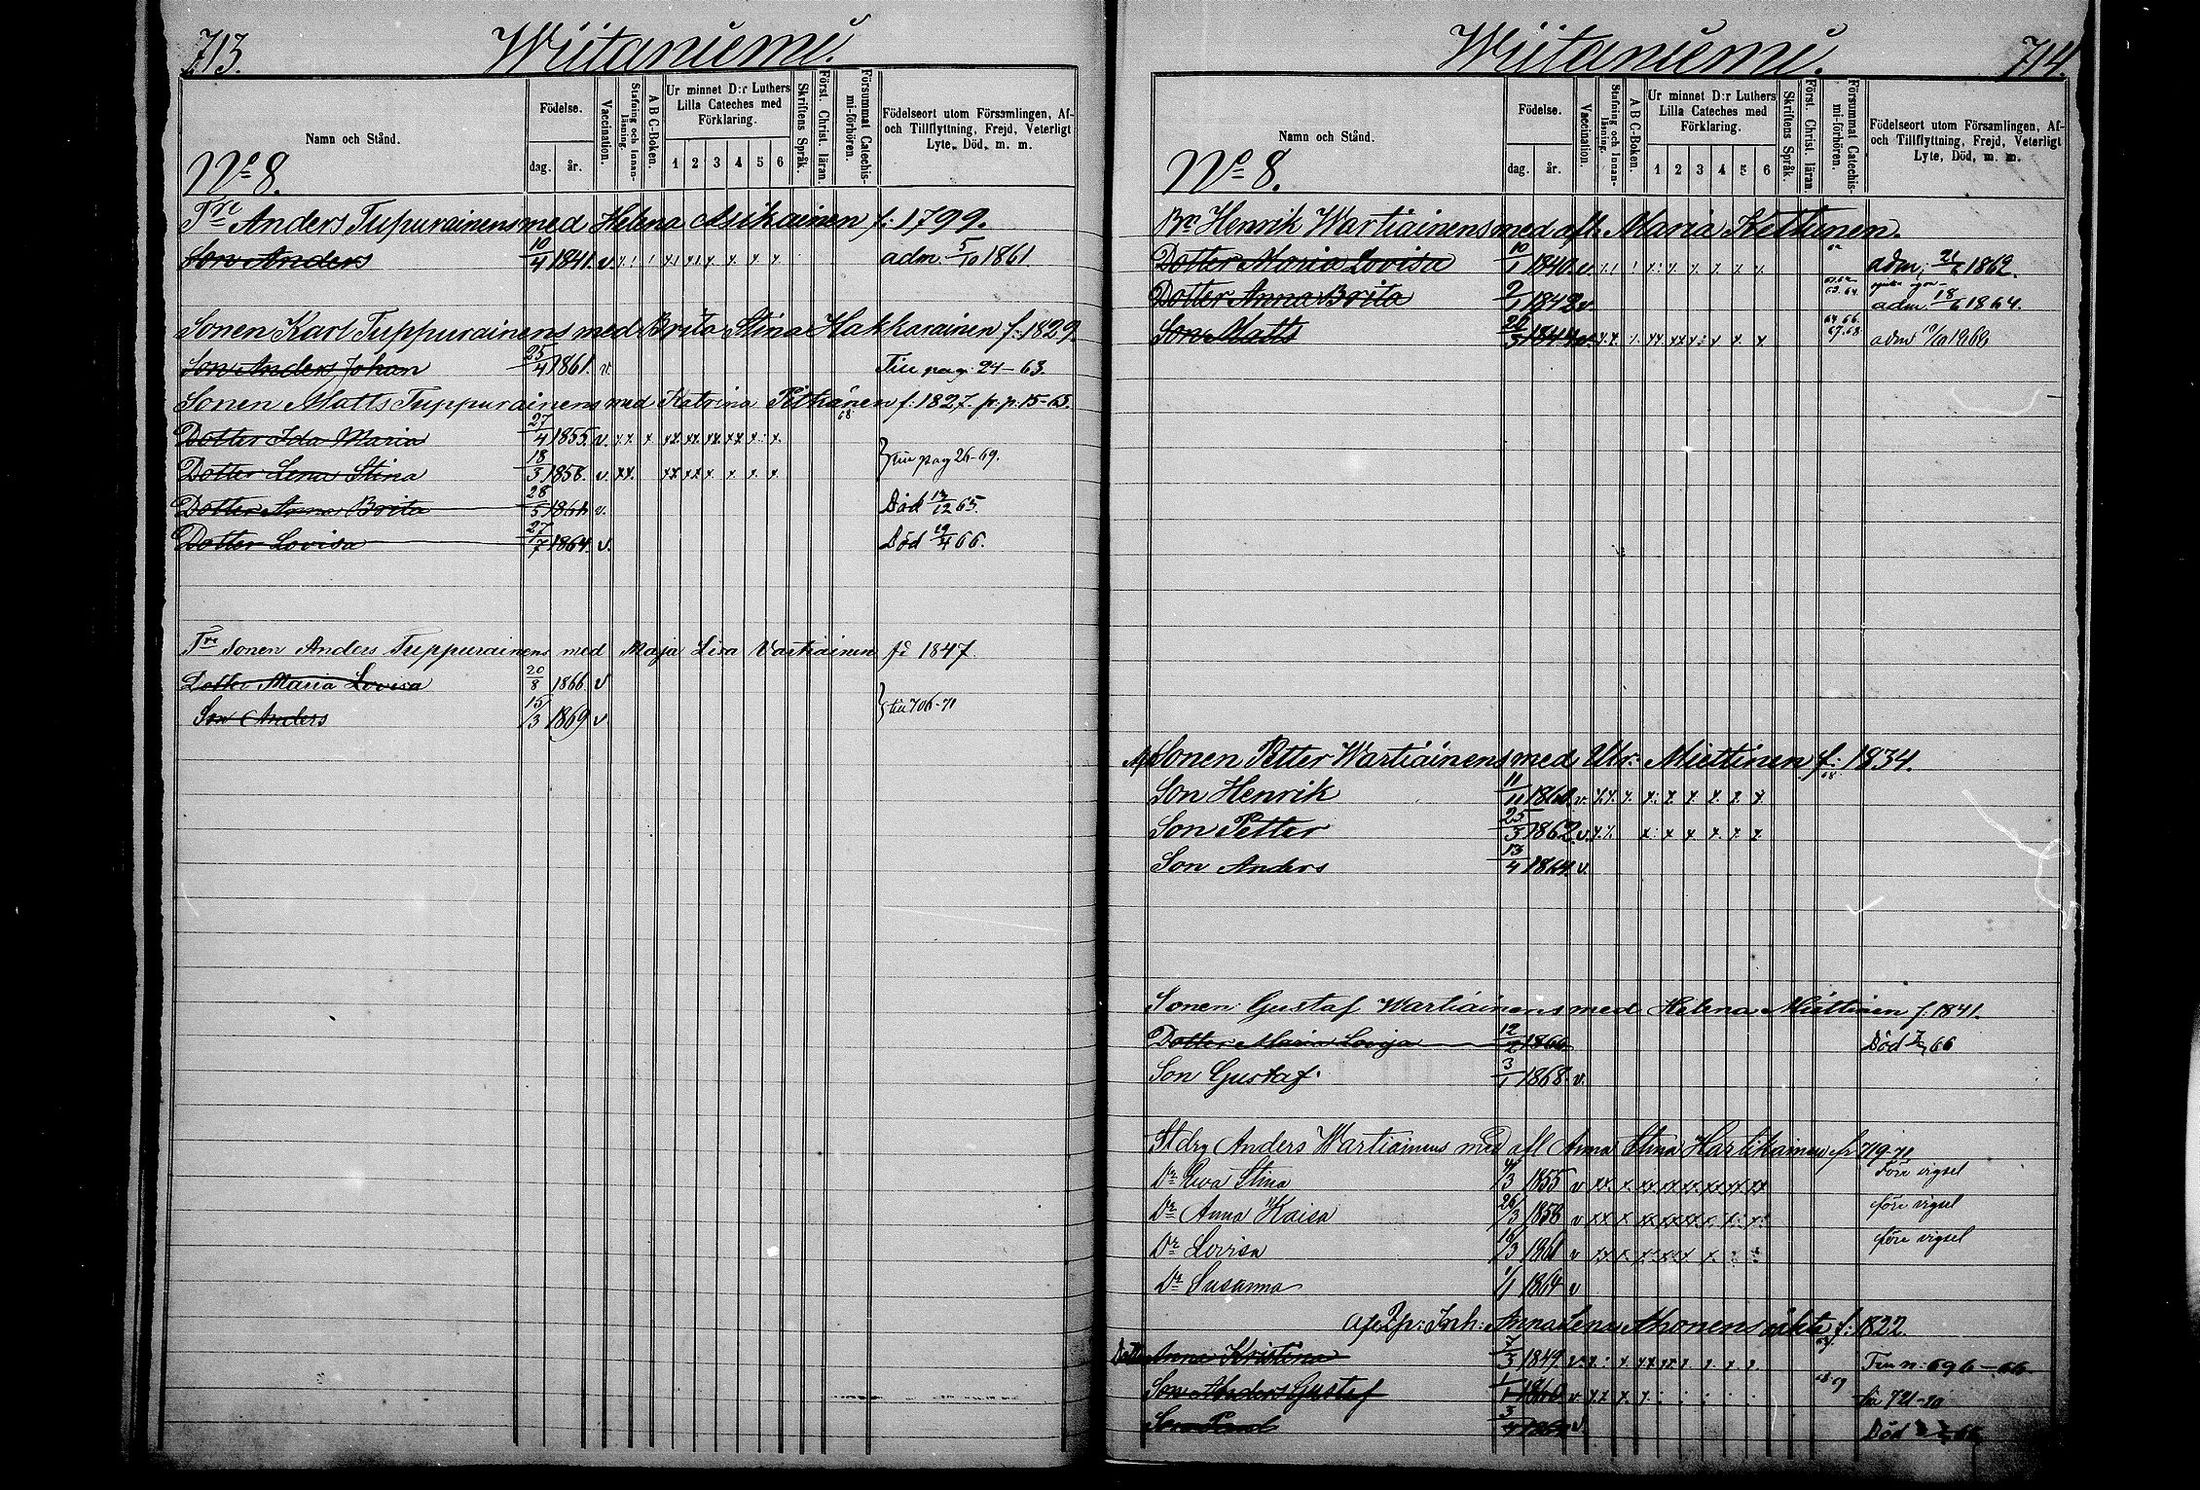 713.
Wiitaniemi.
Namn och Stånd.
Födelse.
dag. år.
Vaccination.
Stafning och Innan-läsning.
A B C-Boken.
Ur minnet D:r Luthers Lilla Cateches med Förklaring.
1 2 3 4 5 6
Skriftens Språk.
Först. Christ. läran.
Försummat Catechis-mi-förhören.
Födelseort utom Församlingen, Af- och Tillflyttning, Frejd, Veterligt Lyte, Död, m. m.
No 8.
Anders Tupurainens med Helena Asikainen f: 1799.
Son Anders 10/4 1841. v. adm. 5/10 1861.
Sonen Karl Tuppurainens med Brita Stina Hakkarainen f: 1829.
Son Anders Johan 25/4 1861. v. Till pag. 24-63.
Sonen Matts Tuppurainens med Katrina Pitkänen f: 1827. fr. p. 15-63.
68
Dotter Ida Maria 27/4 1855. v.
Dotter Lena Stina 18/3 1858. v. till pag 26-69.
Dotter Anna Brita 28/5 1861 v. Död 13/12 65.
Dotter Lovisa 27/7 1864. v. Död 19/4 66.
Sonen Anders Tuppurainens med Maja Lisa Vartiainen fd 1847.
Dotter Maria Lovisa 20/8 1866. v
Son Anders 15/3 1869 v till 706-71
Wiitaniemi.
714.
Namn och Stånd.
Födelse.
dag. år.
Vaccination.
Stafning och Innan-läsning.
A B C-Boken.
Ur minnet D:r Luthers Lilla Cateches med Förklaring.
1 2 3 4 5 6
Skriftens Språk.
Först. Christ. läran.
Försummat Catechis-mi-förhören.
Födelseort utom Församlingen, Af- och Tillflyttning, Frejd, Veterligt Lyte, Död, m. m.
No 8.
Bn Henrik Wartiainens med afl. Maria Kettunen.
Dotter Maria Lovisa 10/1 1840. v. adm; 21/6 1862.
Dotter Anna Brita 2/1 1842 v. 63.64. adm. 18/6 1864.
Son Matts 26/3 1844 v. 64 66. 67.68. adm
Sonen Petter Wartiainens med Ulr: Miettinen f: 1834.
68
Son Henrik 11/11 1860. v.
Son Petter 25/3 1862. v.
Son Anders 13/4 1864. v.
Sonen Gustaf Wartiainens med Helena Miettinen f. 1841.
Dotter Maria Lovisa 12/2 1866 Död 66
Son Gustaf. 3/1 1868. v.
Stdrg Anders Wartiainens med afl Anna Stina Hartikainen fr 719-71
Dr Eva Stina 4/3 1855 v före vigsel
Dr Anna Kaisa 26/3 1858 v före vigsel
Dr Lovisa 16/3 v före vigsel
Dr Susanna 1/1 1864 v
Inh: Anna Lena äkta f: 1822.
Dotter Anna Kristina 7/3 1849. v. 696-66
Son Anders Gustaf 1/1 1860 v 68 69 till 721-70
Son v. Död 66